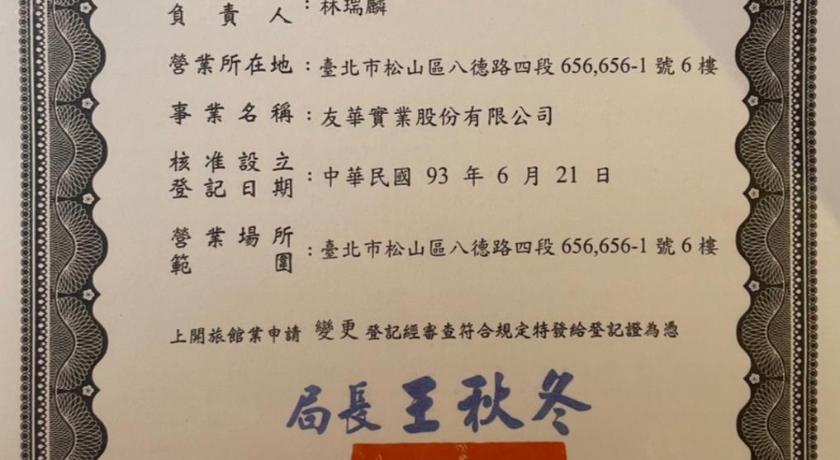 負責人：林瑞麟
營業所在地：臺北市松山區八德路四段656,656-1號6樓
事業名稱：友華實業股份有限公司
核准設立登記日期：中華民國 93 年 6 月 21 日
營業場所範圍：臺北市松山區八德路四段656,656-1號6樓
上開旅館業申請 變更 登記經審查符合規定特發給登記證為憑
局長王秋冬